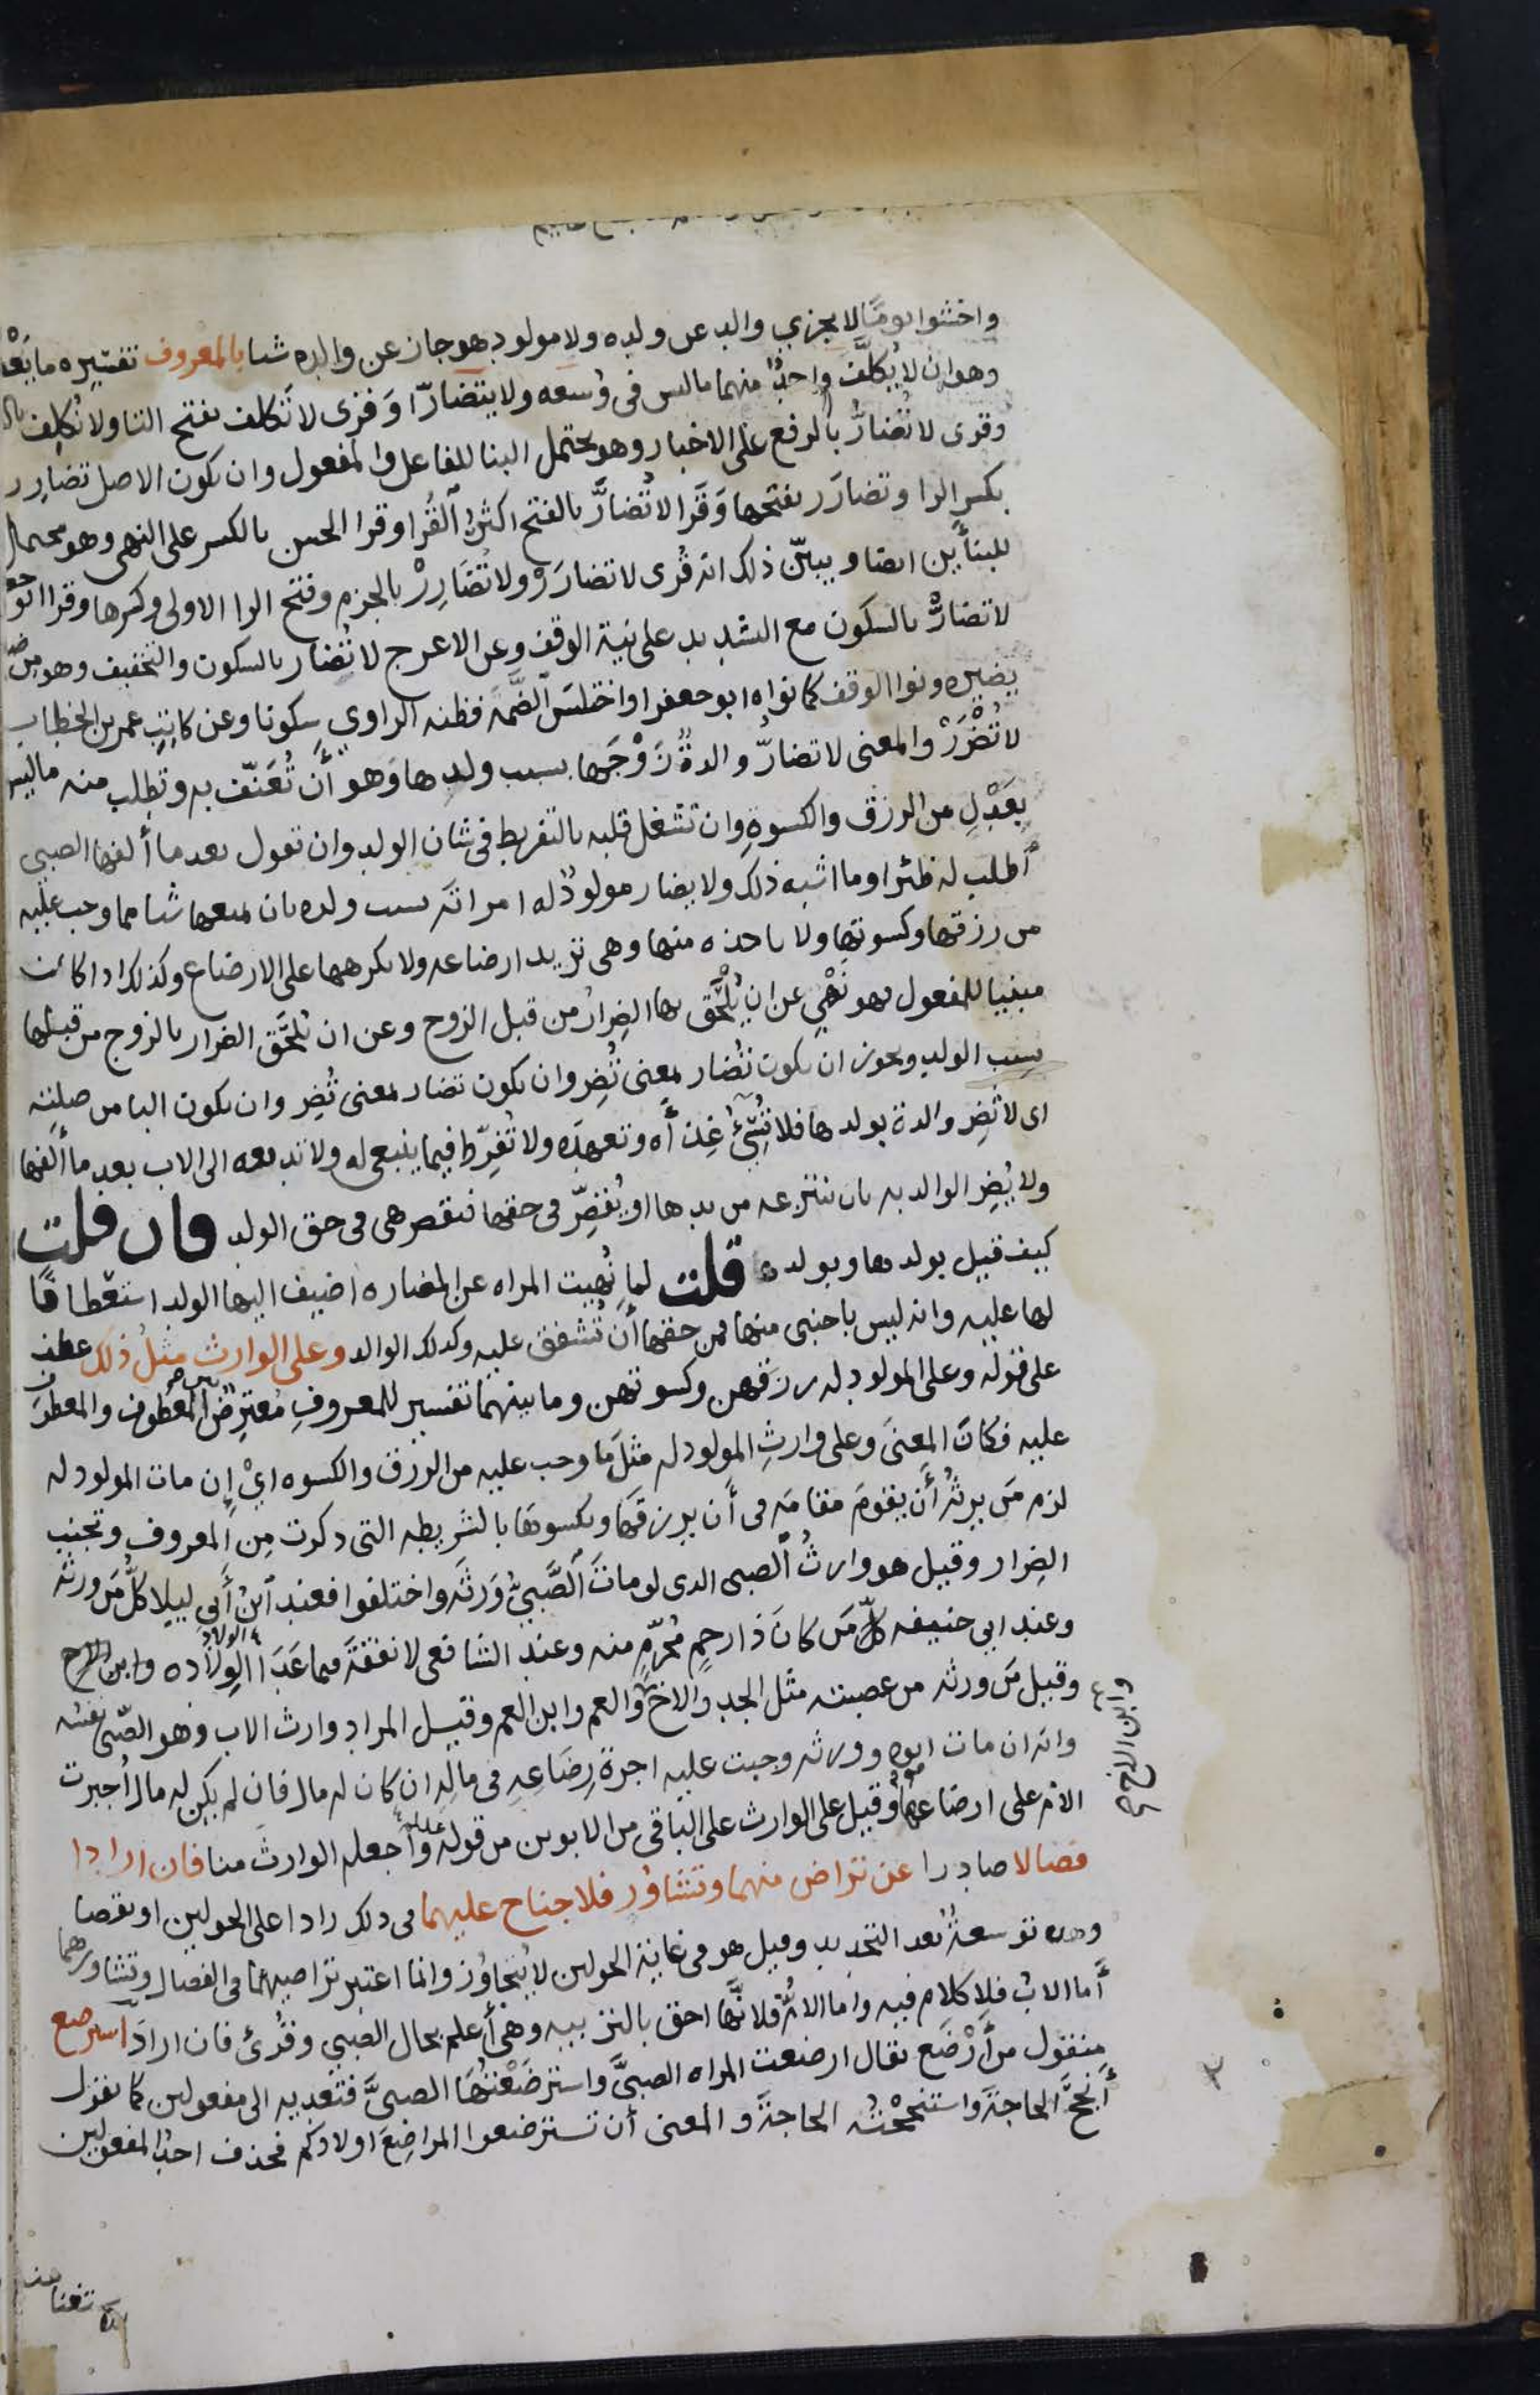 واخشوا يوما لا يجزي والد عن ولده ولا مولود هو جاز عن والده شيا بالمعروف تفسيره ما يعقبه
وهو ان لا يكلف واحد منهما ما ليس في وسعه ولا يتضارا وقرى لا تكلف بفتح التا ولا نكلف بالنون
وقرى لا تضار بالرفع على الاخبار وهو يحتمل البنا للفاعل والمفعول وان يكون الاصل تضارر
بكسر الرا وتضارر بفتحها وقرا لا تضار بالفتح اكثر القرا وقرا الحسن بالكسر على النهي وهو محتمل
للبنأين ايضا ويبين ذلك انه قرى لا تضارر ولا تضارر بالجزم وفتح الرا الاولى وكسرها وقرا ابو جعفر
لا تضار بالسكون مع التشديد على نية الوقف وعن الاعرج لا تضار بالسكون والتخفيف وهو من ضار
يضيره ونوا الوقف كما نواه ابو جعفر او اختلس الضمة فظنه الراوي سكونا وعن كاتب عمر بن الخطاب
لا تضرر والمعنى لا تضار والدة زوجها بسبب ولدها وهو أن تعنف به وتطلب منه ما ليس
بعدل من الرزق والكسوة وان تشغل قلبه بالتفريط في شان الولد وان تقول بعد ما ألفها الصبي
أطلب له ظئرا وما اشبه ذلك ولا يضار مولود له امراته بسبب ولده بان يمنعها شيا مما وجب عليه
من رزقها وكسوتها ولا ياخذه منها وهي تريد ارضاعه ولا يكرهها على الارضاع وكذلك اذا كانت
مبنيا للمفعول فهو نهي عن ان يلحق بها الضرار من قبل الزوج وعن ان يلحق الضرار بالزوج من قبلها
بسبب الولد ويجوز ان يكون تضار بمعنى تضر وان يكون تضار بمعنى تضر وان يكون البا من صلته
اى لا تضر والدة بولدها فلا تسئ غذأه وتعهده ولا تفرط فيما ينبغي له ولا تدفعه الى الاب بعد ما ألفها
ولا يضر الوالد به بان ينتزعه من يدها او يقصر في حقها فتقصر هي في حق الولد فان قلت
كيف قيل بولدها وبولده قلت لما نهيت المراه عن المضاره اضيف اليها الولد استعطافا
لها عليه وانه ليس باجنبي منها فمن حقها أن تشفق عليه وكذلك الوالد وعلى الوارث مثل ذلك عطف
على قوله وعلى المولود له رزقهن وكسوتهن وما بينهما تفسير للمعروف معترض بين المعطوف والمعطوف
عليه فكان المعنى وعلى وارث المولود له مثل ما وجب عليه من الرزق والكسوه اي إن مات المولود له
لزم من يرثه أن يقوم مقامه في أن يرزقها ويكسوها بالشريطه التي ذكرت من المعروف وتجنب
الضرار وقيل هو وارث الصبي الذى لو مات الصبي ورثه واختلفوا فعند ابن أبي ليلا كل من ورثه
وعند ابي حنيفه كل من كان ذا رحم محرم منه وعند الشافعي لا نفقة فيما عدا الولاده
وقيل من ورثه من عصبته مثل الجد والاخ والعم وابن العم وقيل المراد وارث الاب وهو الصبي نفسه
وابن الاخ صح
وانه ان مات ابوه وورثه وجبت عليه اجرة رضاعه في ماله ان كان له مال فان لم يكن له مال أجبرت
الام على ارضاعه وقيل على الوارث على الباقي من الابوين من قوله واجعله الوارث منا فان ارادا
فصالا صادرا عن تراض منهما وتشاور فلا جناح عليهما في ذلك زادا على الحولين او نقصا
وهذه توسعة بعد التحديد وقيل هو في غاية الحولين لا يتجاوز وانما اعتبر تراضيهما في الفصال وتشاورهما
أما الاب فلا كلام فيه واما الام فلانها احق بالتربيه وهي أعلم بحال الصبي وقرئ فان اراد استرضع
منقول من أرضع يقال ارضعت المراه الصبي واسترضعتها الصبي فتعديه الى مفعولين كما تقول
أنجح الحاجة واستنجحته الحاجة والمعنى أن تسترضعوا المراضع اولادكم فحذف احد المفعولين